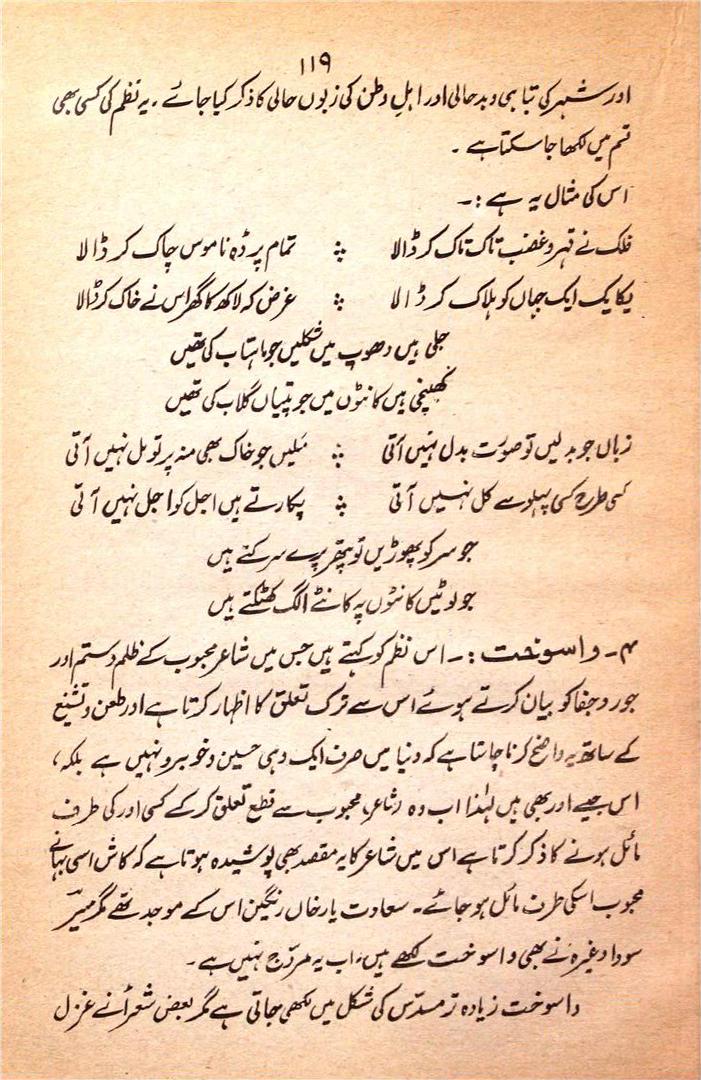 ۱۱۹
اور شہر کی تباہی و بدحالی اور اہلِ وطن کی زبوں حالی کا ذکر کیا جائے ۔ یہ نظم کی کسی بھی
قسم میں لکھا جا سکتا ہے ۔
اس کی مثال یہ ہے :۔
فلک نے قہر و غضب تاک تاک کر ڈالا ؞ تمام پردۂ ناموس چاک کر ڈالا
یکایک ایک جہاں کو ہلاک کر ڈالا ؞ غرض کہ لاکھ کا گھر اس نے خاک کر ڈالا
جلی ہیں دھوپ میں شکلیں جو ماہتاب کی تھیں
کھنچی ہیں کانٹوں میں جو پتیاں گلاب کی تھیں
زباں جو بدلیں تو صورت بدل نہیں آتی ؞ ملیں جو خاک بھی منہ پر تو مل نہیں آتی
کسی طرح کسی پہلو سے کل نہیں آتی ؞ پکارتے ہیں اجل کو اجل نہیں آتی
جو سر کو پھوڑیں تو پتھر پرے سرکتے ہیں
جو لوٹیں کانٹوں پہ کانٹے الگ کھٹکتے ہیں
۴۔ واسوخت :۔ اس نظم کو کہتے ہیں جس میں شاعر محبوب کے ظلم و ستم اور
جور و جفا کو بیان کرتے ہوئے اس سے ترک تعلق کا اظہار کرتا ہے اور طعن و تشنیع
کے ساتھ یہ واضح کرنا چاہتا ہے کہ دنیا میں صرف ایک وہی حسین و خوبرو نہیں ہے بلکہ ،
اس جیسے اور بھی ہیں لہٰذا اب وہ (شاعر) محبوب سے قطع تعلق کر کے کسی اور کی طرف
مائل ہونے کا ذکر کرتا ہے اس میں شاعر کا یہ مقصد بھی پوشیدہ ہوتا ہے کہ کاش اسی بہانے
محبوب اسکی طرف مائل ہو جائے۔ سعادت یار خاں رنگین اس کے موجد تھے مگر میرؔ
سودا وغیرہ نے بھی واسوخت لکھے ہیں، اب یہ مروّج نہیں ہے ۔
واسوخت زیادہ تر مسدّس کی شکل میں لکھی جاتی ہے مگر بعض شعرأ نے غزل